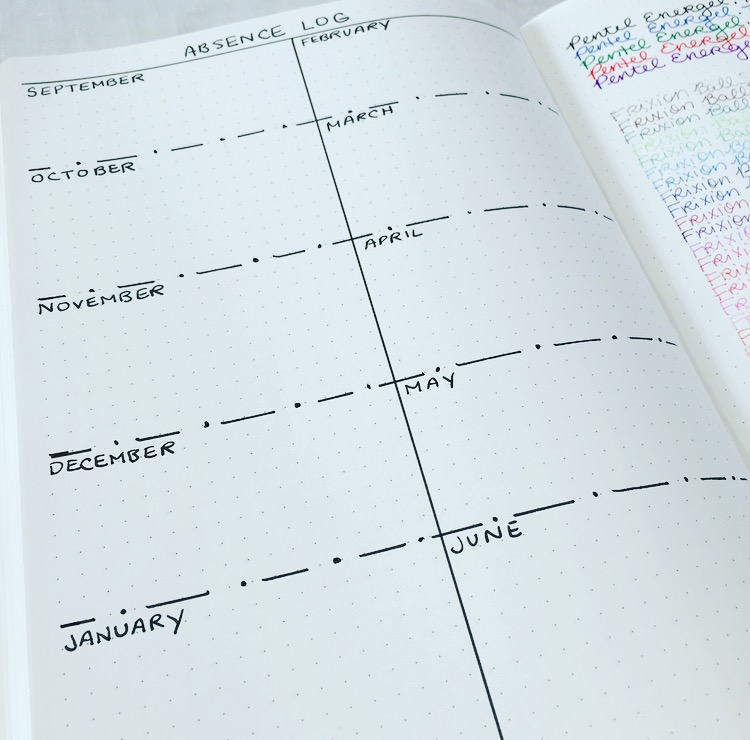 ABSENCE LOG
SEPTEMBER
OCTOBER
NOVEMBER
DECEMBER
JANUARY
FEBRUARY
MARCH
APRIL
MAY
JUNE
Pentel Energel.
Pentel Energel.
Pentel Energel
Pentel Energel.
Pentel Energel
Frixion Ball
Frixion Ball
Frixion Ball
Frixion
Frixion Ba
Frixion B
Frixion B
Frixion B
Frixion
Frixion
Frixion